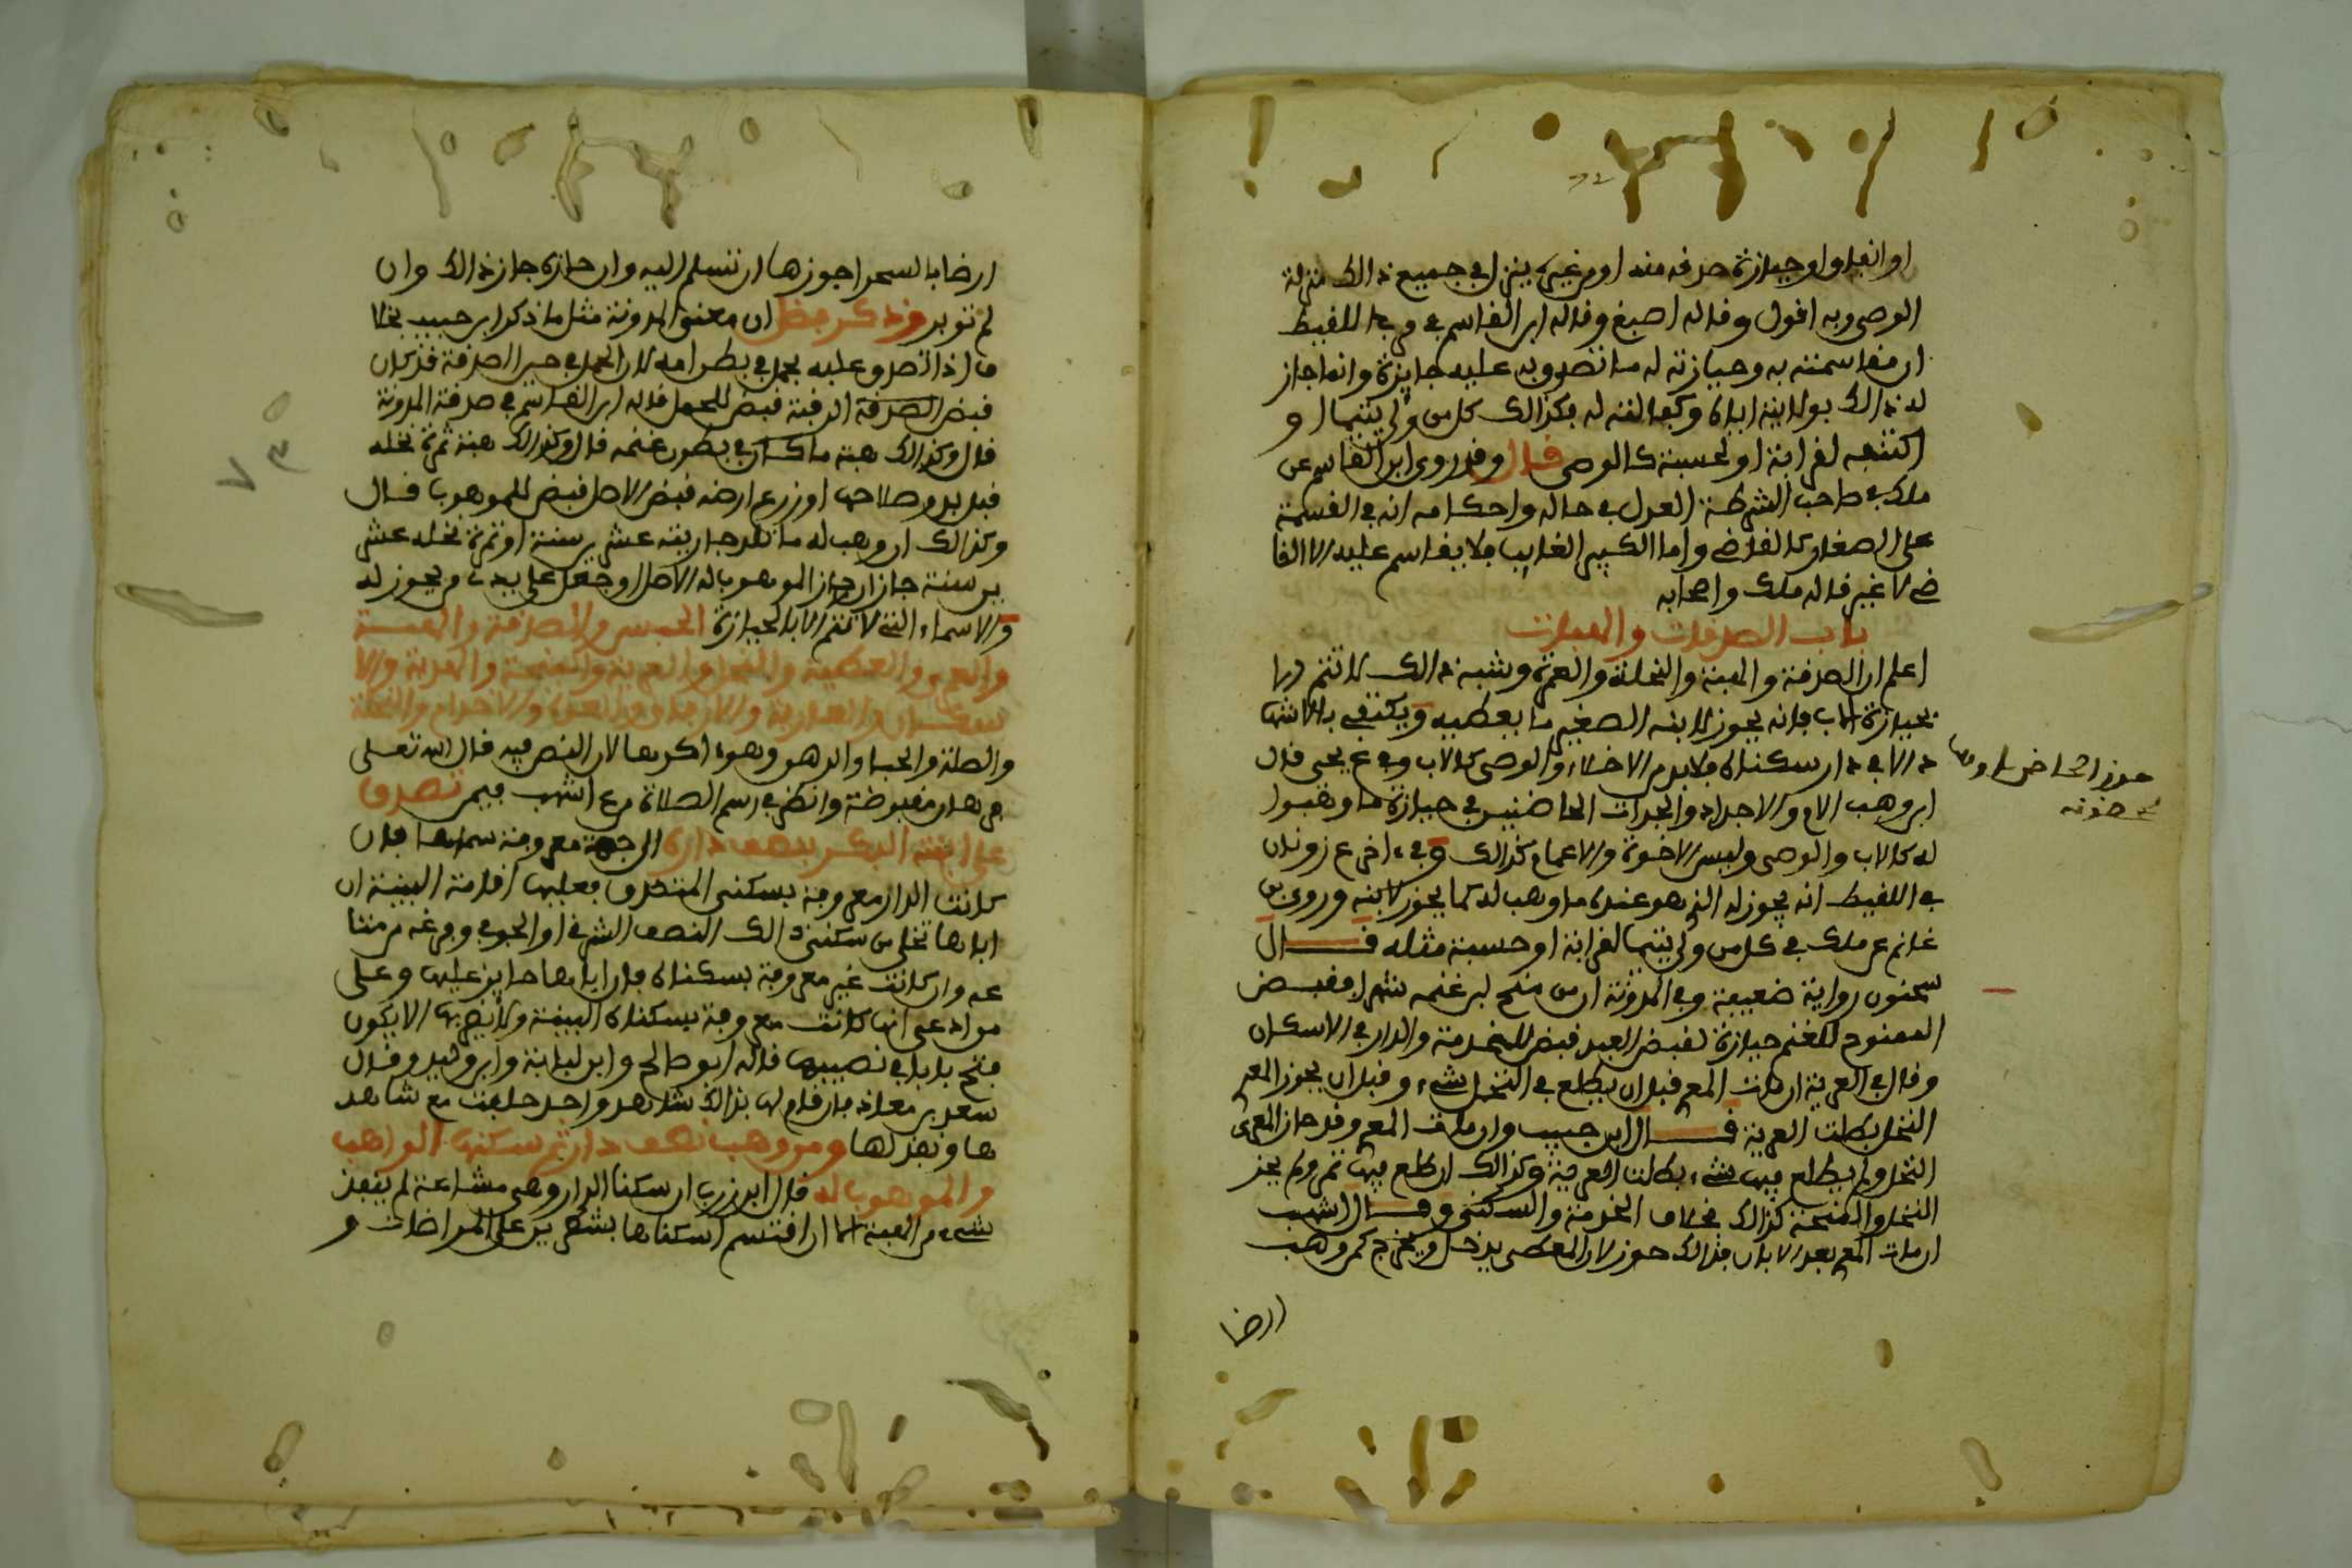 او انفد واوحيازة صدقه منه او من غيره ينزل في جميع ذالك منزلة
الوصي وبه اقول وقاله اصبغ وقاله ابن القاسم في وجه اللقيط
ان مقاسمته به وحيازته له ما تصدق به عليه جايزة وانما جاز
له ذالك بولايته اياه وكفالته له فكذالك كل من ولي يتيما او
اكتنفه لقرابة او لحسبة كالوصي قال وقد روى ابن القاسم عن
ملك في صاحب الشرطة العدل في حاله واحكامه انه في القسمة
على الصغار كالقاضي واما الكبير الغايب فلا يقاسم عليه الا القا
ضي لا غير قاله ملك واصحابه
باب الصدقات والهبات
اعلم ان الصدقة والهبة والنحلة والعمرى وشبه ذالك لا تتم الا
بحيازة الاب فانه يحوز لابنه الصغير ما يعطيه ويكتفي بالاشها
د الا في دار سكناه فلا بد من الاخلاء والوصي كالاب وفي ع يحيى قال
ابن وهب الام والاجداد والجدات الحاضنين في حيازة ما وهبوا
له كالاب والوصي وليس الاخوة والاعمام كذالك وفي اخر ع زونان
في اللقيط انه يحوز له الذي هو عنده ما وهب له كما يحوز لابنه وروى بن
غانم عن ملك في كل من ولي يتيما لقرابة او حسبة مثله قال
سحنون رواية ضعيفة وفي المدونة ان من منح لبن غنمه شهرا فقبض
الممنوح للغنم حيازة كقبض العبد قبض للخدمة والدار في الاسكان
وقال في العرية ان مات المعر قبل ان يطلع في النخل شيء وقبل ان يحوز المعر
النخل بطلت العرية قال ابن حبيب وان مات المعر وقد حاز المعرى
النخل ولم يطلع فيها شيء بطلت العرية وكذالك ان طلع فيها ثمر ولم يحز
النخل والمنحة كذالك بخلاف الخدمة والسكنى وقال اشهب
ان مات المعر بعد الابار فذالك حوز لان المعطى يدخل ويخرج كمن وهب
ارضا
حوز الحاضن لما وهب
لمحضونه
ارضا بالسحرا جوزها ان تتسلم اليه وان حازه جاز ذالك وان
لم توبر وذكر فضل ان معنى المدونة مثل ما ذكر ابن حبيب بخلا
ف اذا تصدق عليه بحمل في بطن امه لان الحمل في حين الصدقة قد كان
قبض الصدقة الرقبة قبض للحمل قاله ابن القاسم في صدقة المدونة
قال وكذالك هبة ما كان في بطون غنمه قال وكذالك هبة ثمرة نخله
قبل بدو صلاحها او زرع ارضه قبض الاصل قبض للموهوب قال
وكذالك ان وهب له ما تلد جاريته عشرين سنة او ثمرة نخله عش
رين سنة جاز ان حاز الموهوب له الاصل او جعل على يدي من يحوز له
والاسماء التي لا تتم الا بالحيازة الحبس والصدقة والهبة
والعمرى والعطية والنحل والعرية والمنحة والهدية والا
سكان والعارية والارفاق والعدة والاخدام والنحلة
والصلة والحباء والرهن وهو اكدها لان النص فيه قال الله تعلى
فرهان مقبوضة وانظر في رسم الصلاة من ع اشهب فيمن تصدق
على ابنته البكر بنصف داره الى جهة معروفة سماها فان
كانت الدار معروفة بسكنى المتصدق فعليها اقامة البينة ان
اباها تخلى من سكنى ذالك النصف الشرقي او الجوفي وفرغه من متا
عه وان كانت غير معروفة بسكناه فان اباها حايز عليها وعلى
من ادعى انها كانت معروفة بسكناه البينة ولا يضرها الا يكون
فتح بابا في نصيبها قاله ابو صالح وابن لبابة وابن وليد وقال
سعد بن معاذ فان قام لها بذالك شاهد واحد حلفت مع شاهد
ها ونفذ لها ومن وهب نصف دار ثم سكنها الواهب
والموهوب له قال ابن زرب ان سكنا الدار وهي مشاعة لم ينفذ
شيء من الهبة الا ان اقتسم اسكناها بشطرين على المراضات و